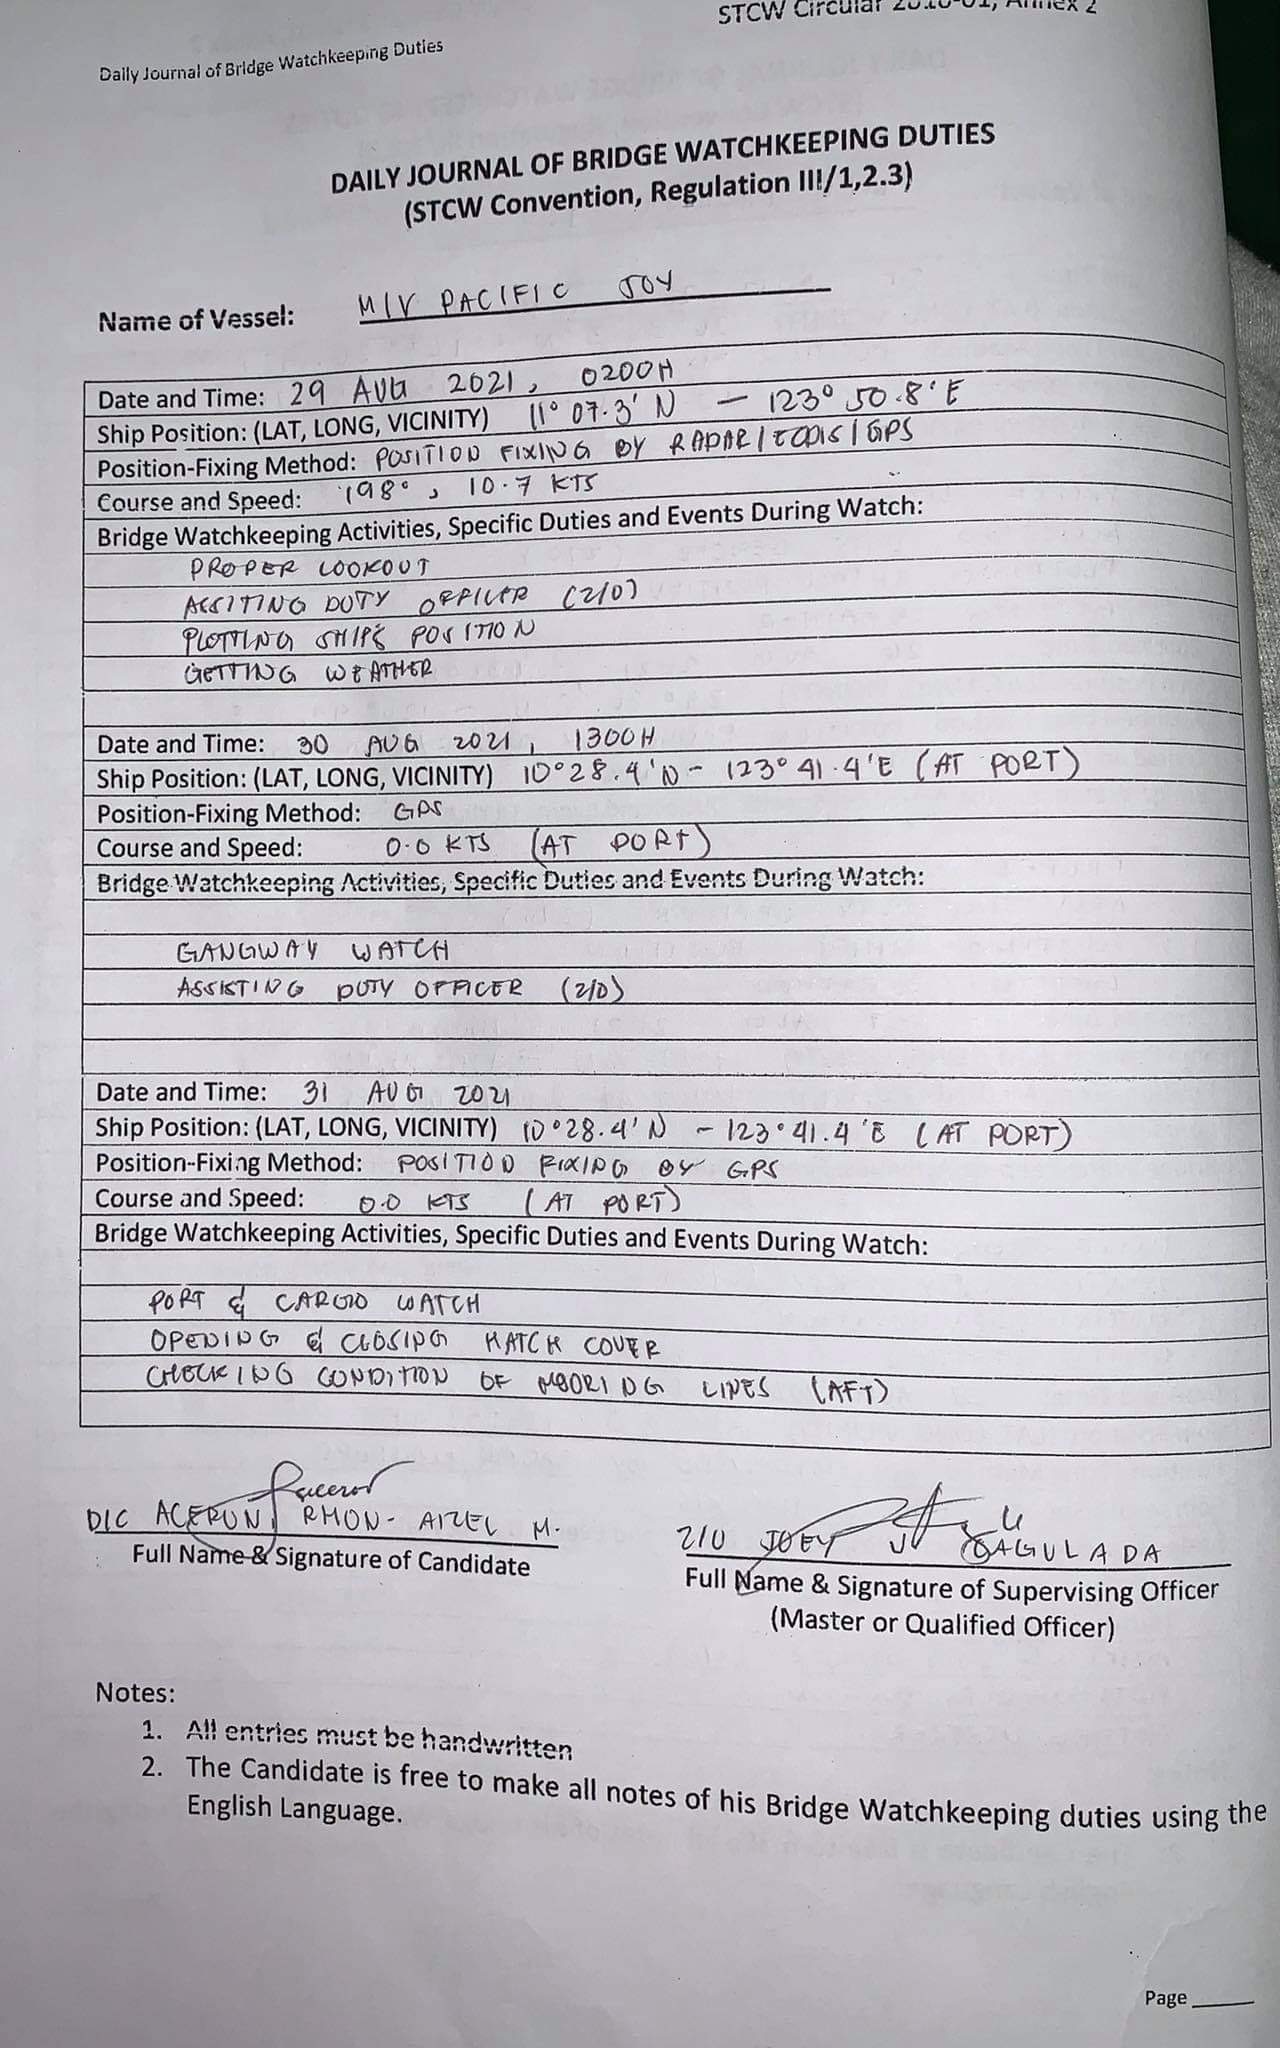 STCW Circular
Daily Journal of Bridge Watchkeeping Duties
DAILY JOURNAL OF BRIDGE WATCHKEEPING DUTIES
(STCW Convention, Regulation III/1,2.3)
Name of Vessel: M/V PACIFIC JOY
Date and Time: 29 AUG 2021, 0200H
Ship Position: (LAT, LONG, VICINITY) 11° 07.3' N - 123° 50.8' E
Position-Fixing Method: POSITION FIXING BY RADAR/ECDIS/GPS
Course and Speed: 198°, 10.7 KTS
Bridge Watchkeeping Activities, Specific Duties and Events During Watch:
PROPER LOOKOUT
ASSITING DUTY OFFICER (2/O)
PLOTTING SHIP'S POSITION
GETTING WEATHER
Date and Time: 30 AUG 2021, 1300H
Ship Position: (LAT, LONG, VICINITY) 10°28.4'N - 123° 41.4'E (AT PORT)
Position-Fixing Method: GPS
Course and Speed: 0.0 KTS (AT PORT)
Bridge Watchkeeping Activities, Specific Duties and Events During Watch:
GANGWAY WATCH
ASSISTING DUTY OFFICER (2/O)
Date and Time: 31 AUG 2021
Ship Position: (LAT, LONG, VICINITY) 10°28.4'N - 123°41.4'E (AT PORT)
Position-Fixing Method: POSITION FIXING BY GPS
Course and Speed: 0.0 KTS (AT PORT)
Bridge Watchkeeping Activities, Specific Duties and Events During Watch:
PORT & CARGO WATCH
OPENING & CLOSING HATCH COVER
CHECKING CONDITION OF MOORING LINES (AFT)
D/C ACERON, RHON-AIZEL M.
Full Name & Signature of Candidate
2/O JOEY SAGULADA
Full Name & Signature of Supervising Officer
(Master or Qualified Officer)
Notes:
1. All entries must be handwritten
2. The Candidate is free to make all notes of his Bridge Watchkeeping duties using the
English Language.
Page